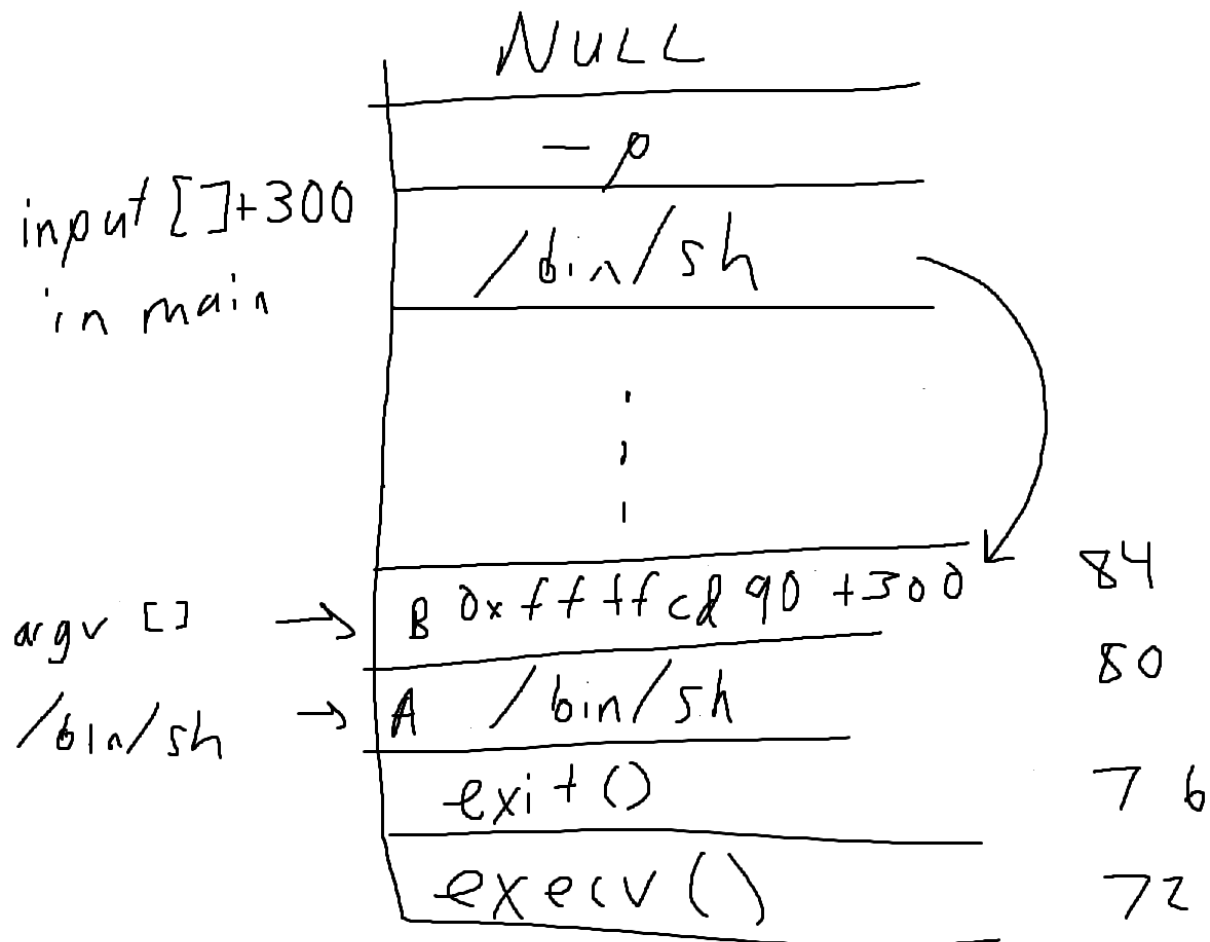 NULL
-p
input []+300
in main
/bin/sh
argv [] → B 0xffffcd90 +300 84
80
/bin/sh → A /bin/sh
exit() 76
execv() 72